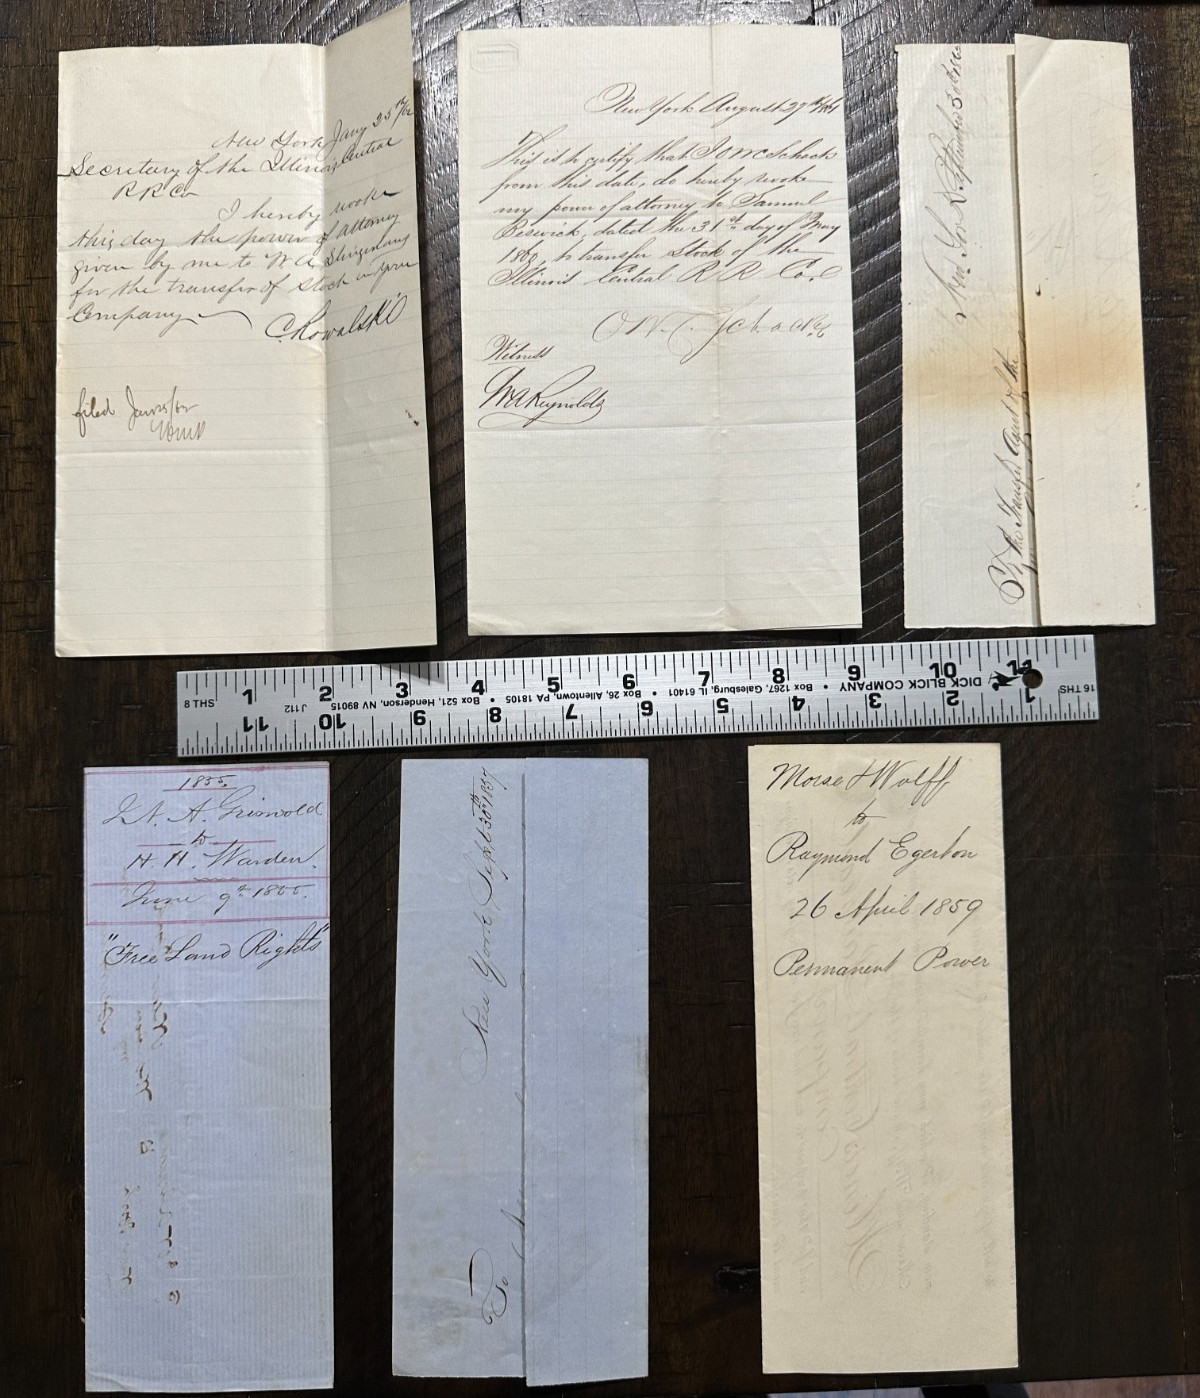 New York Jany 25th/62
Secretary of the Illinois Central
R R Co
I hereby revoke
this day the power of attorney
given by me to W A
for the transfer of Stock in your
Company
C. Kowalski
filed
New York August 29th
This is to certify that I O W C Schack
from this date, do hereby revoke
my power of attorney to Samuel
Beswick, dated the 31st day of May
1860, to transfer Stock of the
Illinois Central R R Co.
O W C Schack
Witness
W A Reynolds
New York September 30
To the Transfer Agent of the
8 THS 1 2 3 4 5 6 7 8 9 10 11
16 THS 1 2 3 4 5 6 7 8 9 10 11
DICK BLICK COMPANY • Box 1267, Galesburg, IL 61401 • Box 26, Allentown, PA 18105 • Box 521, Henderson, NV 89015
J112
1855.
A. Griswold
to
H. H. Warden.
June 9th 1855.
"Free Land Rights"
New York, Sept 30th 1857
To
Morse & Wolff
to
Raymond Egerton
26 April 1859
Permanent Power